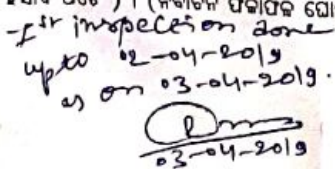 (ନିର୍ବାଚନ ଫଳାଫଳ ଘୋ
-Ist inspection done
upto 02-04-2019
as on 03-04-2019.
03-04-2019